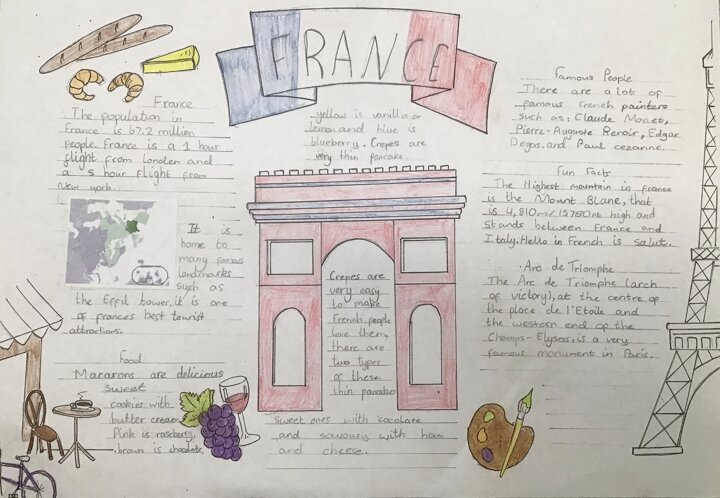 FRANCE
France
The population in
France is 67.2 million
people. France is a 1 hour
flight from London and
a 5 hour flight from
New york.
It is
home to
many famous
landmarks
such as
the Effil tower, it is one
of frances best tourist
attractions.
Food
Macarons are delicious
sweet
cookies with
butter cream
Pink is raseberry,
brown is chocolate,
yellow is vanilla or
lemon and blue is
blueberry. Crepes are
very thin pancake.
Crepes are
very easy
to make
French people
love them,
there are
two types
of these
thin pancakes
Sweet ones with cocolate
and savoury with ham
and cheese.
Famous People
There are a lot of
famous french painters
such as: Claude Monet,
Pierre-Auguste Renoir, Edgar
Degas. and Paul cezanne.
Fun Facts
The Highest mountain in france
is the Mount Blanc, that
is 4,810m/ft high and
stands between France and
Italy. Hello in French is salut.
Arc de Triomphe
The Arc de Triomphe (arch
of victory), at the centre of
the place de l'Etoile and
the western end of the
Champs-Elysees, is a very
famous monument in Paris.